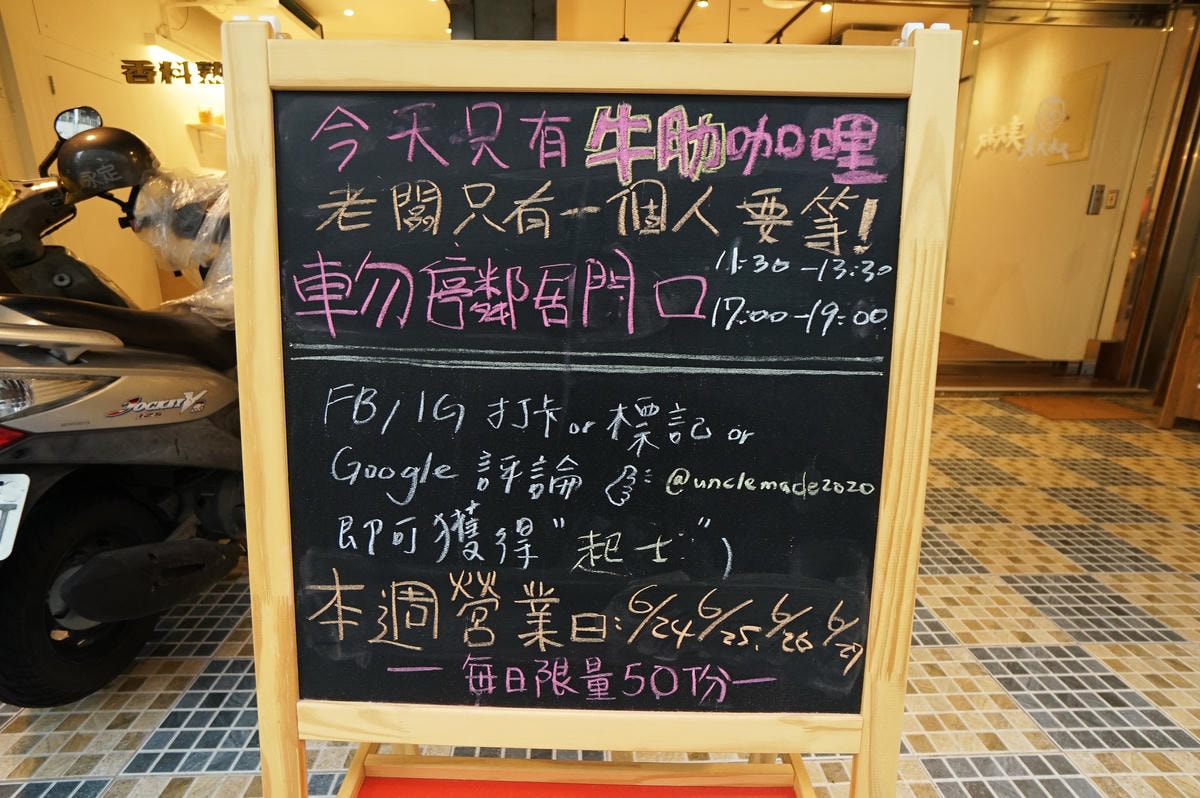 香料熟
今天只有牛肋咖哩
老闆只有一個人要等!
車勿停鄰居門口
11:30-13:30
17:00-19:00
FB/IG 打卡 or 標記 or
Google 評論 @unclemade2020
即可獲得"起士")
本週營業日:6/24 6/25. 6/26 6/27
一每日限量50份一
JOCKEY
125